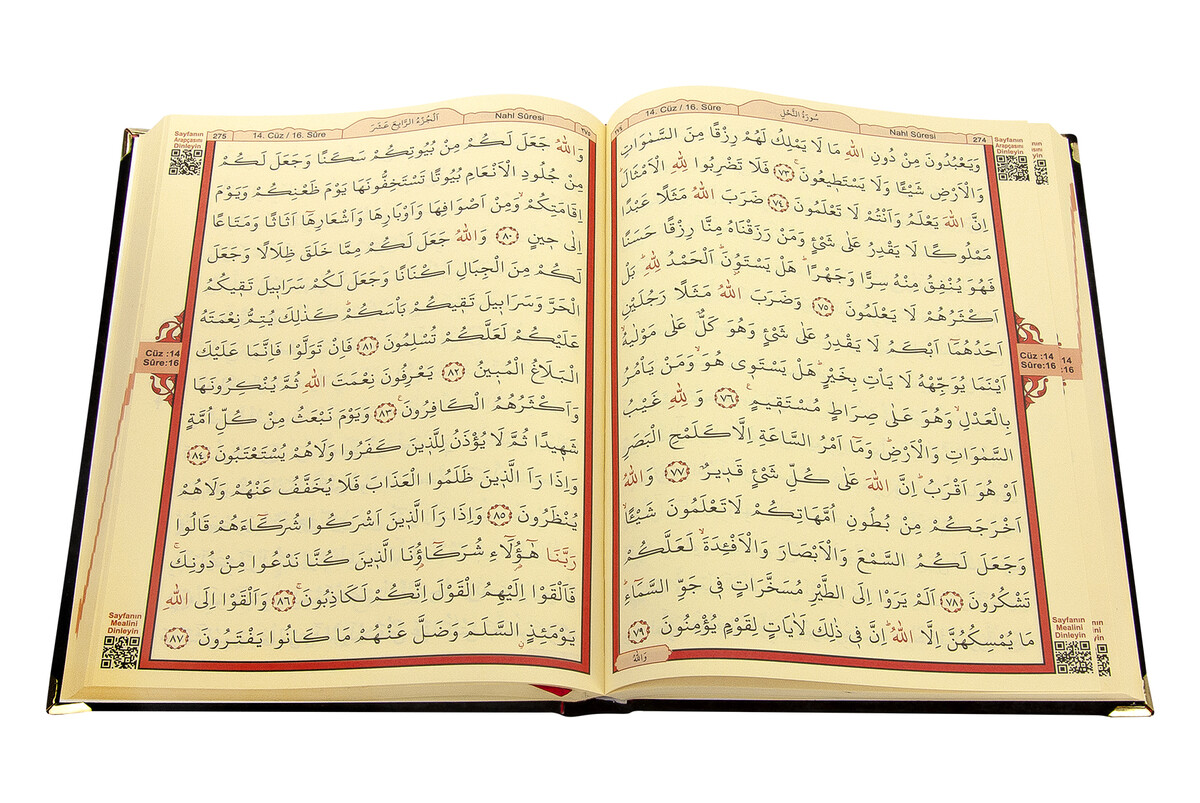 سُورَةُ النَّحْلِ
14. Cüz / 16. Sûre
Nahl Sûresi
274
Sayfanın
Arapçasını
Dinleyin
وَيَعْبُدُونَ مِنْ دُونِ اللّٰهِ مَا لَا يَمْلِكُ لَهُمْ رِزْقًا مِنَ السَّمٰوَاتِ
وَالْاَرْضِ شَيْـًٔا وَلَا يَسْتَط۪يعُونَۚ ﴿٧٣﴾ فَلَا تَضْرِبُوا لِلّٰهِ الْاَمْثَالَۜ
اِنَّ اللّٰهَ يَعْلَمُ وَاَنْتُمْ لَا تَعْلَمُونَ ﴿٧٤﴾ ضَرَبَ اللّٰهُ مَثَلًا عَبْدًا
مَمْلُوكًا لَا يَقْدِرُ عَلٰى شَيْءٍ وَمَنْ رَزَقْنَاهُ مِنَّا رِزْقًا حَسَنًا
فَهُوَ يُنْفِقُ مِنْهُ سِرًّا وَجَهْرًاۜ هَلْ يَسْتَوُ۫نَۜ اَلْحَمْدُ لِلّٰهِۜ بَلْ
اَكْثَرُهُمْ لَا يَعْلَمُونَ ﴿٧٥﴾ وَضَرَبَ اللّٰهُ مَثَلًا رَجُلَيْنِ
اَحَدُهُمَٓا اَبْكَمُ لَا يَقْدِرُ عَلٰى شَيْءٍ وَهُوَ كَلٌّ عَلٰى مَوْلٰيهُۙ
اَيْنَمَا يُوَجِّهْهُ لَا يَأْتِ بِخَيْرٍۜ هَلْ يَسْتَو۪ي هُوَۙ وَمَنْ يَأْمُرُ
بِالْعَدْلِۙ وَهُوَ عَلٰى صِرَاطٍ مُسْتَق۪يمٍ۟ ﴿٧٦﴾ وَلِلّٰهِ غَيْبُ
السَّمٰوَاتِ وَالْاَرْضِۜ وَمَٓا اَمْرُ السَّاعَةِ اِلَّا كَلَمْحِ الْبَصَرِ
اَوْ هُوَ اَقْرَبُۜ اِنَّ اللّٰهَ عَلٰى كُلِّ شَيْءٍ قَد۪يرٌ ﴿٧٧﴾ وَاللّٰهُ
اَخْرَجَكُمْ مِنْ بُطُونِ اُمَّهَاتِكُمْ لَا تَعْلَمُونَ شَيْـًٔاۙ
وَجَعَلَ لَكُمُ السَّمْعَ وَالْاَبْصَارَ وَالْاَفْـِٔدَةَۙ لَعَلَّكُمْ
تَشْكُرُونَ ﴿٧٨﴾ اَلَمْ يَرَوْا اِلَى الطَّيْرِ مُسَخَّرَاتٍ ف۪ي جَوِّ السَّمَٓاءِۜ
مَا يُمْسِكُهُنَّ اِلَّا اللّٰهُۜ اِنَّ ف۪ي ذٰلِكَ لَاٰيَاتٍ لِقَوْمٍ يُؤْمِنُونَ ﴿٧٩﴾
وَاللّٰهُ
Cüz :14
Sûre:16
Sayfanın
Mealini
Dinleyin
اَلْجُزْءُ الرَّابِعَ عَشَرَ
275
14. Cüz / 16. Sûre
Nahl Sûresi
٢٧٥
Sayfanın
Arapçasını
Dinleyin
وَاللّٰهُ جَعَلَ لَكُمْ مِنْ بُيُوتِكُمْ سَكَنًا وَجَعَلَ لَكُمْ
مِنْ جُلُودِ الْاَنْعَامِ بُيُوتًا تَسْتَخِفُّونَهَا يَوْمَ ظَعْنِكُمْ وَيَوْمَ
اِقَامَتِكُمْۙ وَمِنْ اَصْوَافِهَا وَاَوْبَارِهَا وَاَشْعَارِهَٓا اَثَاثًا وَمَتَاعًا
اِلٰى ح۪ينٍ ﴿٨٠﴾ وَاللّٰهُ جَعَلَ لَكُمْ مِمَّا خَلَقَ ظِلَالًا وَجَعَلَ
لَكُمْ مِنَ الْجِبَالِ اَكْنَانًا وَجَعَلَ لَكُمْ سَرَاب۪يلَ تَق۪يكُمُ
الْحَرَّ وَسَرَاب۪يلَ تَق۪يكُمْ بَأْسَكُمْۜ كَذٰلِكَ يُتِمُّ نِعْمَتَهُ
عَلَيْكُمْ لَعَلَّكُمْ تُسْلِمُونَ ﴿٨١﴾ فَاِنْ تَوَلَّوْا فَاِنَّمَا عَلَيْكَ
الْبَلَاغُ الْمُب۪ينُ ﴿٨٢﴾ يَعْرِفُونَ نِعْمَتَ اللّٰهِ ثُمَّ يُنْكِرُونَهَا
وَاَكْثَرُهُمُ الْكَافِرُونَ۟ ﴿٨٣﴾ وَيَوْمَ نَبْعَثُ مِنْ كُلِّ اُمَّةٍ
شَه۪يدًا ثُمَّ لَا يُؤْذَنُ لِلَّذ۪ينَ كَفَرُوا وَلَا هُمْ يُسْتَعْتَبُونَ ﴿٨٤﴾
وَاِذَا رَاَ الَّذ۪ينَ ظَلَمُوا الْعَذَابَ فَلَا يُخَفَّفُ عَنْهُمْ وَلَا هُمْ
يُنْظَرُونَ ﴿٨٥﴾ وَاِذَا رَاَ الَّذ۪ينَ اَشْرَكُوا شُرَكَٓاءَهُمْ قَالُوا
رَبَّنَا هٰٓؤُ۬لَٓاءِ شُرَكَٓاؤُ۬نَا الَّذ۪ينَ كُنَّا نَدْعُوا مِنْ دُونِكَۚ
فَاَلْقَوْا اِلَيْهِمُ الْقَوْلَ اِنَّكُمْ لَكَاذِبُونَۚ ﴿٨٦﴾ وَاَلْقَوْا اِلَى اللّٰهِ
يَوْمَئِذٍۨ السَّلَمَ وَضَلَّ عَنْهُمْ مَا كَانُوا يَفْتَرُونَ ﴿٨٧﴾
Cüz :14
Sûre:16
Sayfanın
Mealini
Dinleyin